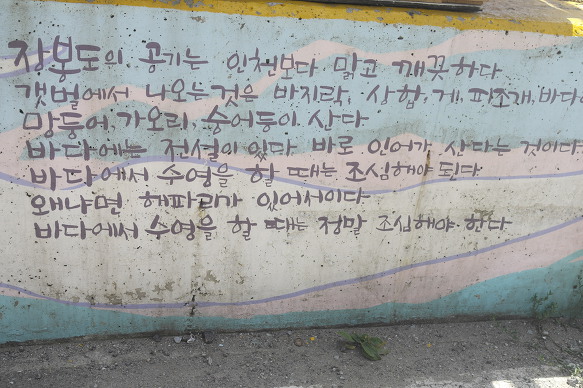 장봉도의 공기는 인천보다 맑고 깨끗하다
갯벌에서 나오는것은 바지락, 상합, 게, 파조개, 바다
망둥어, 가오리, 숭어등이 산다
바다에는 전설이 있다 바로 인어가 산다는 것이다
바다에서 수영을 할 때는 조심해야 된다
왜냐면 해파리가 있어서이다
바다에서 수영을 할 때는 정말 조심해야 한다